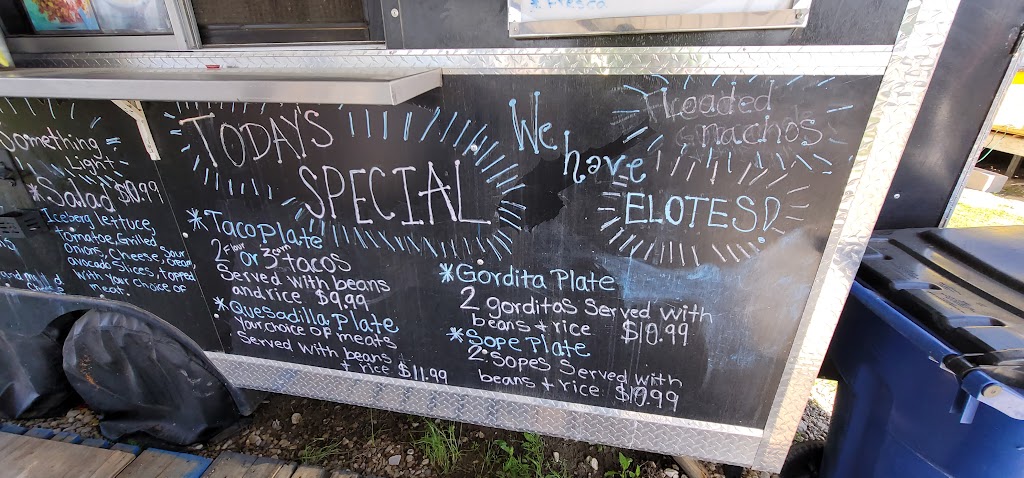 Fresca
Something
Light
*Salad $10.99
Iceberg lettuce,
Tomatoe, Grilled
Onions, Cheese, Sour Cream,
avocado Slices, topped
with your choice of
meat.
TODAY'S
SPECIAL
*Taco Plate
2 Flour or 3 corn tacos
Served with beans
and rice $9.99
*Quesadilla Plate
Your choice of meats
Served with beans
+ rice $11.99
We
have
Loaded
nachos
ELOTES!
*Gordita Plate
2 gorditas Served with
beans + rice $10.99
*Sope Plate
2 Sopes Served with
beans + rice $10.99